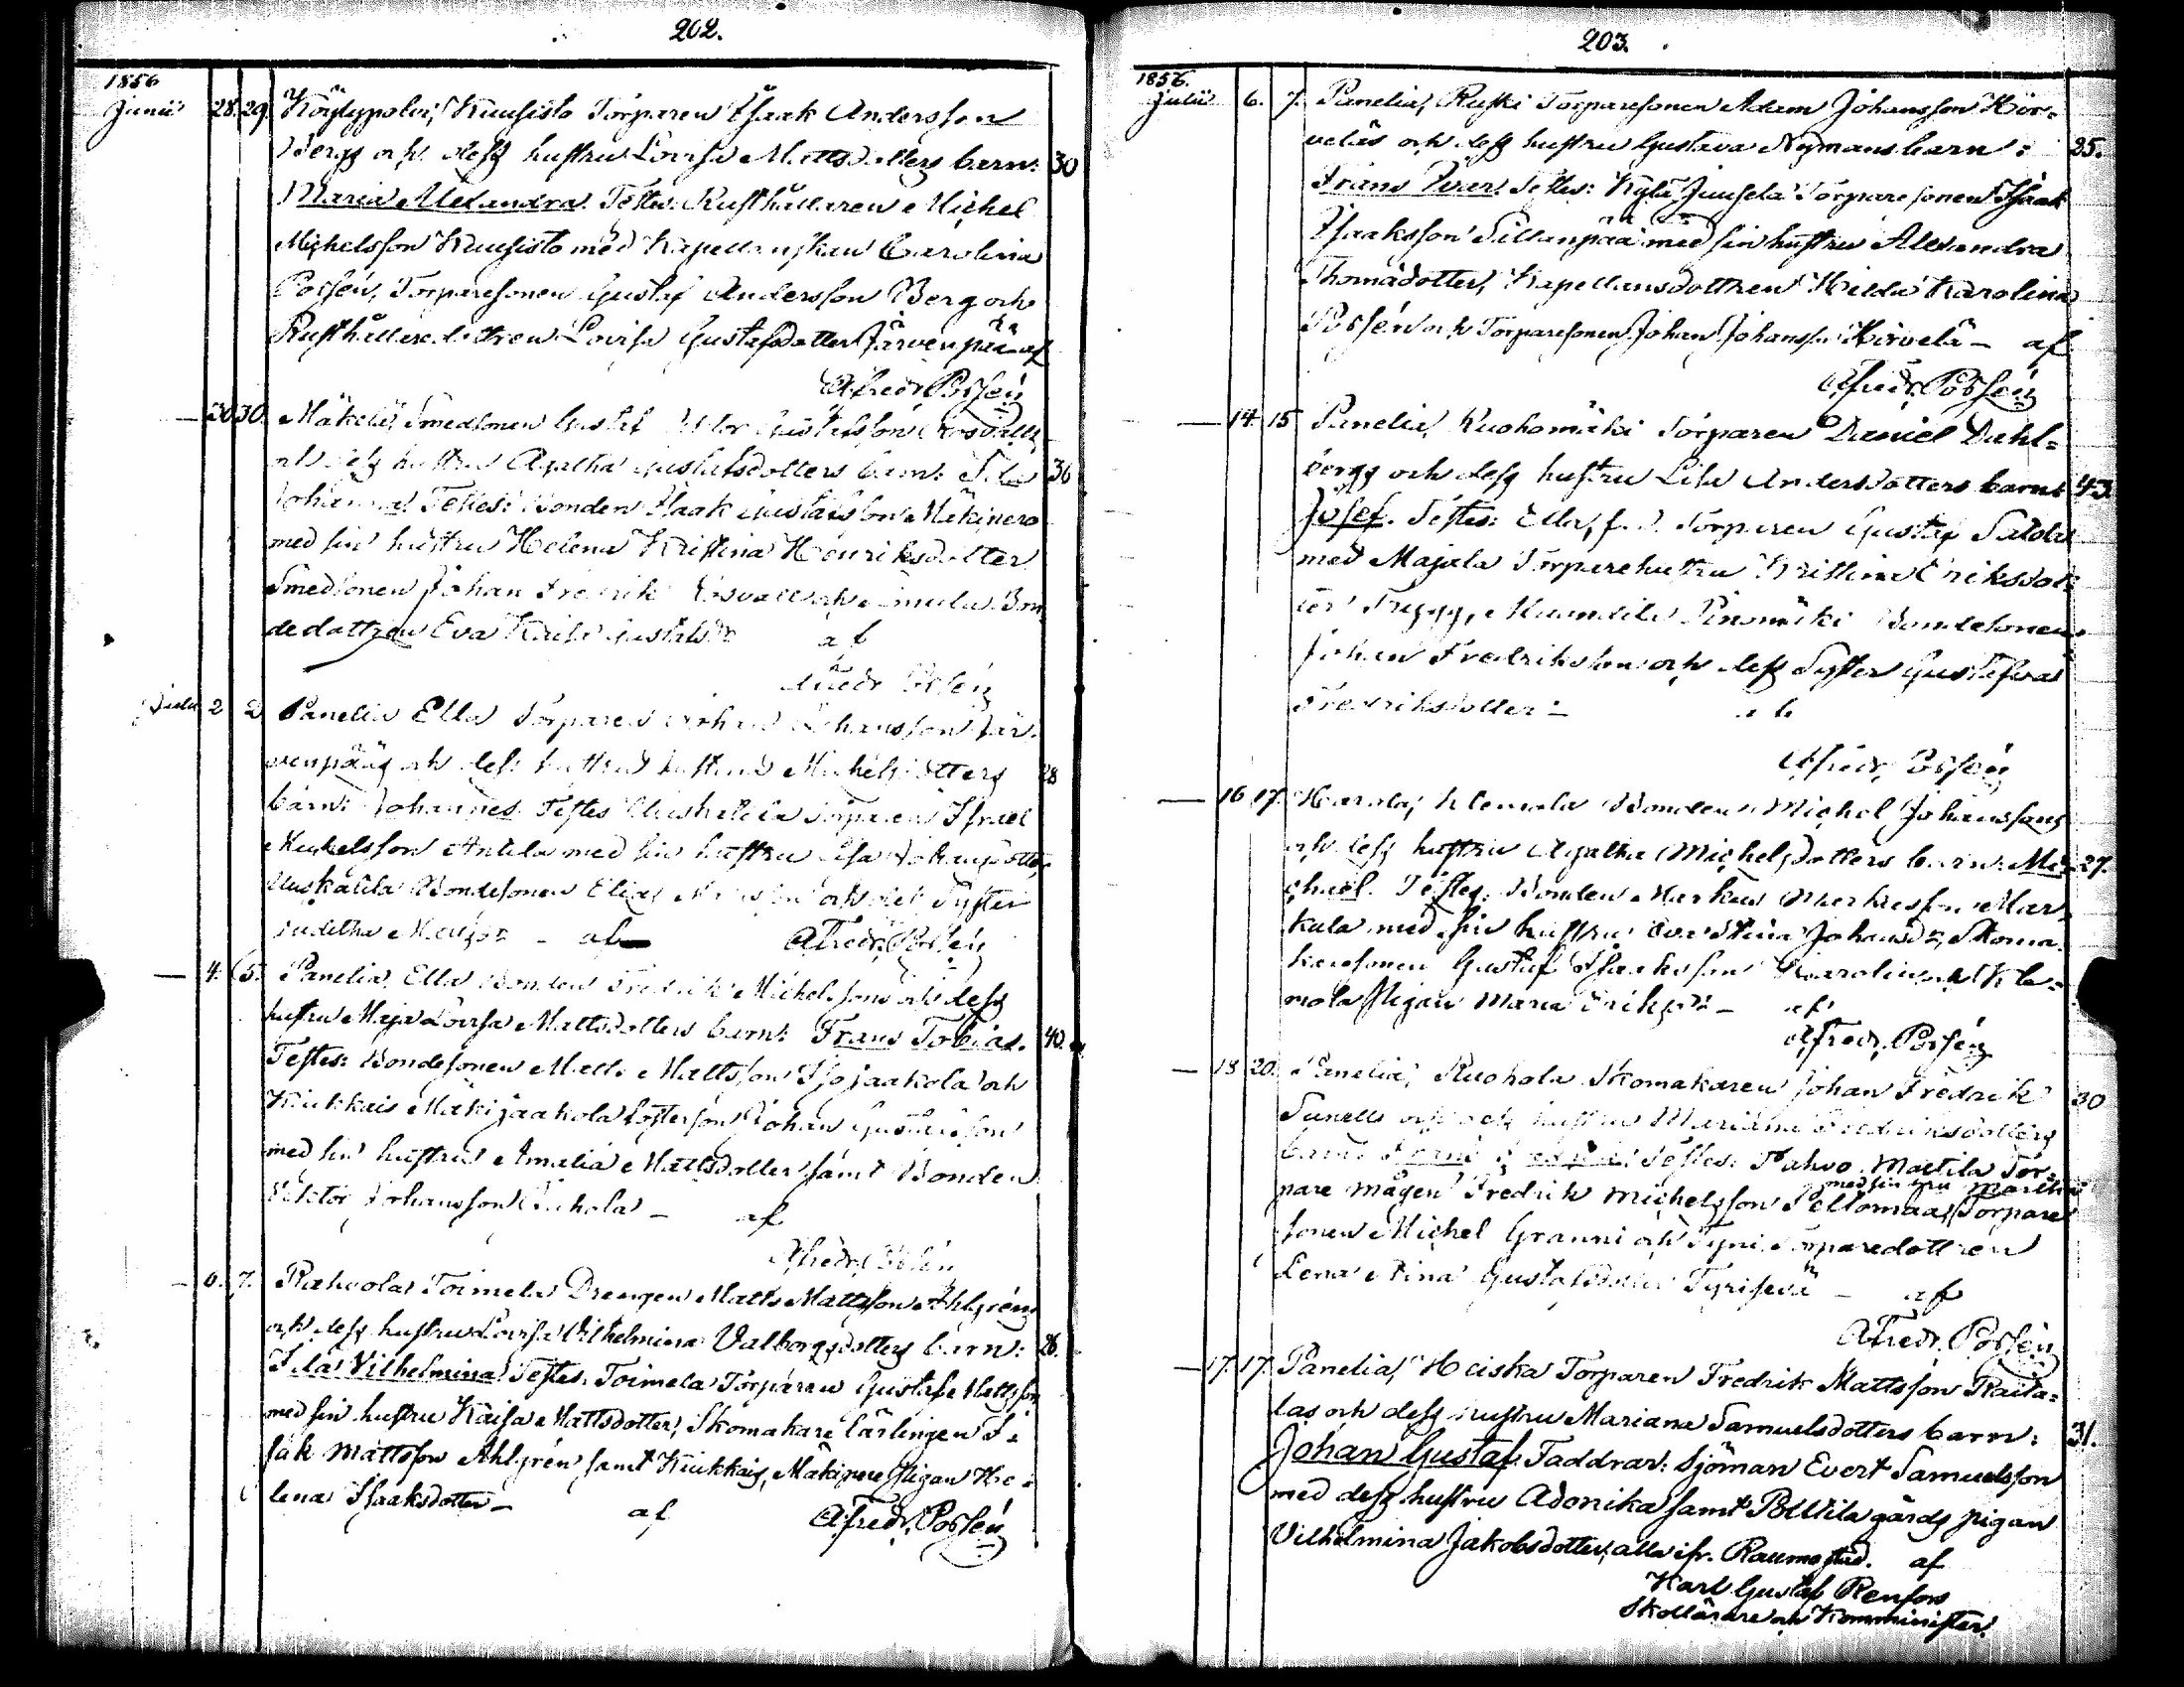 202.
1856
Junii 28. 29. Köylypolvi, Kuusisto Torparen Isaak Andersson
Bergs och dess hustru Lovisa Mattsdotters barn: 30
Maria Alexandra. Testes: Rusthållaren Michel
Michelsson Kuusisto med Kapellanskan Carolina
Possén, Torparesonen Gustaf Andersson Berg och
Rusthålleredottren Lovisa Gustafsdotter Järvenpää af
Alfredr. Possén
— 30. Mäkelä, Smedsonen Gustaf Gustafsson
och dess hustru Agatha Gustafsdotters barn: Ida 36
Johanna. Testes: Bonden Isaak Gustafsson Mäkinero
med sin hustru Helena Kristina Henriksdotter
Smedsonen Johan Fredrik och Bon
dedottren Eva Kaisa Gustafsdr af
Alfredr Possén
Julii 2 2 Panelia Ella Torparen Johan Johansson Jär
venpääs och dess hustru Michelsdotters 28
barn: Johannes. Testes Torparen Israel
Michelsson Antila med sin hustru Johansdotter,
Uuskatila Bondesonen Elias och dess Syster
Juditha — af Alfredr. Possén
— 4. 5. Panelia, Ella Bonden Fredrik Michelssons och dess
hustru Maja Lovisa Mattsdotters barn: Frans Tobias. 40.
Testes: Bondesonen Matts Mattsson Isojaakola och
Kiukkais Mäkijaakola Johan Gustafsson
med sin hustru Amalia Mattsdotter samt Bonden
Viktor Johansson — af
Alfredr. Possén
— 6. 7. Rahvola, Toimela Drengen Matts Mattsson Ahlgréns
och dess hustru Lovisa Vilhelmina Valborgsdotters barn: 26.
Ida Vilhelmina. Testes: Toimela Torparen Gustaf Mattsson
med sin hustru Kaisa Mattsdotter, Skomakare lärlingen I
sak Mattsson Ahlgrén samt Kiukkais, Mäkinero Pigan He=
lena Isaaksdotter — af Alfredr. Possén
203.
1856.
Julii 6. 7. Panelia, Ruski Torparesonen Adam Johansson Hir=
veläs och dess hustru Gustava Nymans barn: 25.
Frans Ivar. Testes: Kylä Juusela Torparesonen Isaak
Isaaksson Sillanpää med sin hustru Alexandra
Thomadotter, Kapellansdottren Hilda Karolina
Possén och Torparesonen Johan Johansson Hirvelä — af
Alfredr. Possén
— 14. 15 Panelia, Ruohomäki Torparen Daniel Dahl=
bergs och dess hustru Lisa Andersdotters barn: 43.
Josef. Testes: Ella, f.d. Torparen Gustaf Salola
med Majala Torparehustru Kristina Eriksdot=
ter Trygg, Bondesonen
Johan Fredriksson och dess Syster Gustafva
Fredriksdotter — af
Alfredr. Possén
— 16 17. Harola, Klemola Bonden Michel Johanssons
och dess hustru Agatha Michelsdotters barn: Mi= 27.
chael. Testes: Bonden Markus Markusson Mar
kula med sin hustru Eva Stina Johansdr, Skoma
karesonen Gustaf Isaaksson och Kle=
mola Pigan Maria Eriksdr — af
Alfredr. Possén
— 18 20. Panelia, Ruohola Skomakaren Johan Fredrik 30
Sanells och dess hustru Mariana Fredriksdotters
barn: Frans Testes: Pahvo Mattila Tor=
pare mågen Fredrik Michelsson Peltomaa med sin hru Martha, Torpare
sonen Michel Granni och Tyni Torparedottren
Lena Stina Gustafsdotter — af
Alfredr. Possén
— 17. 17. Panelia, Heiska Torparen Fredrik Mattsson Raita=
las och dess hustru Mariana Samuelsdotters barn: 31.
Johan Gustaf. Faddrar: Sjöman Evert Samuelsson
med dess hustru Adonika samt Polttila gårds pigan
Vilhelmina Jakobsdotter, alla ifr. Raumo stad. af
Karl Gustaf Renfors
Skollärare och Komminister.